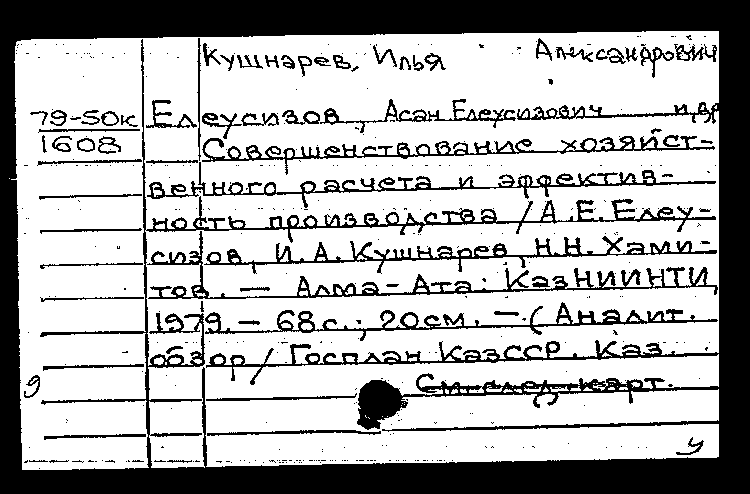 Кушнарев, Илья Александрович
79-50к Елеусизов, Асан Елеусизович и др
1608 Совершенствование хозяйст-
венного расчета и эффектив-
ность производства / А.Е. Елеу-
сизов, И.А. Кушнарев, Н.Н. Хами-
тов. — Алма-Ата: КазНИИНТИ,
1979. — 68 с.; 20 см. — (Аналит.
обзор / Госплан КазССР. Каз.
9 См. след. карт.
у